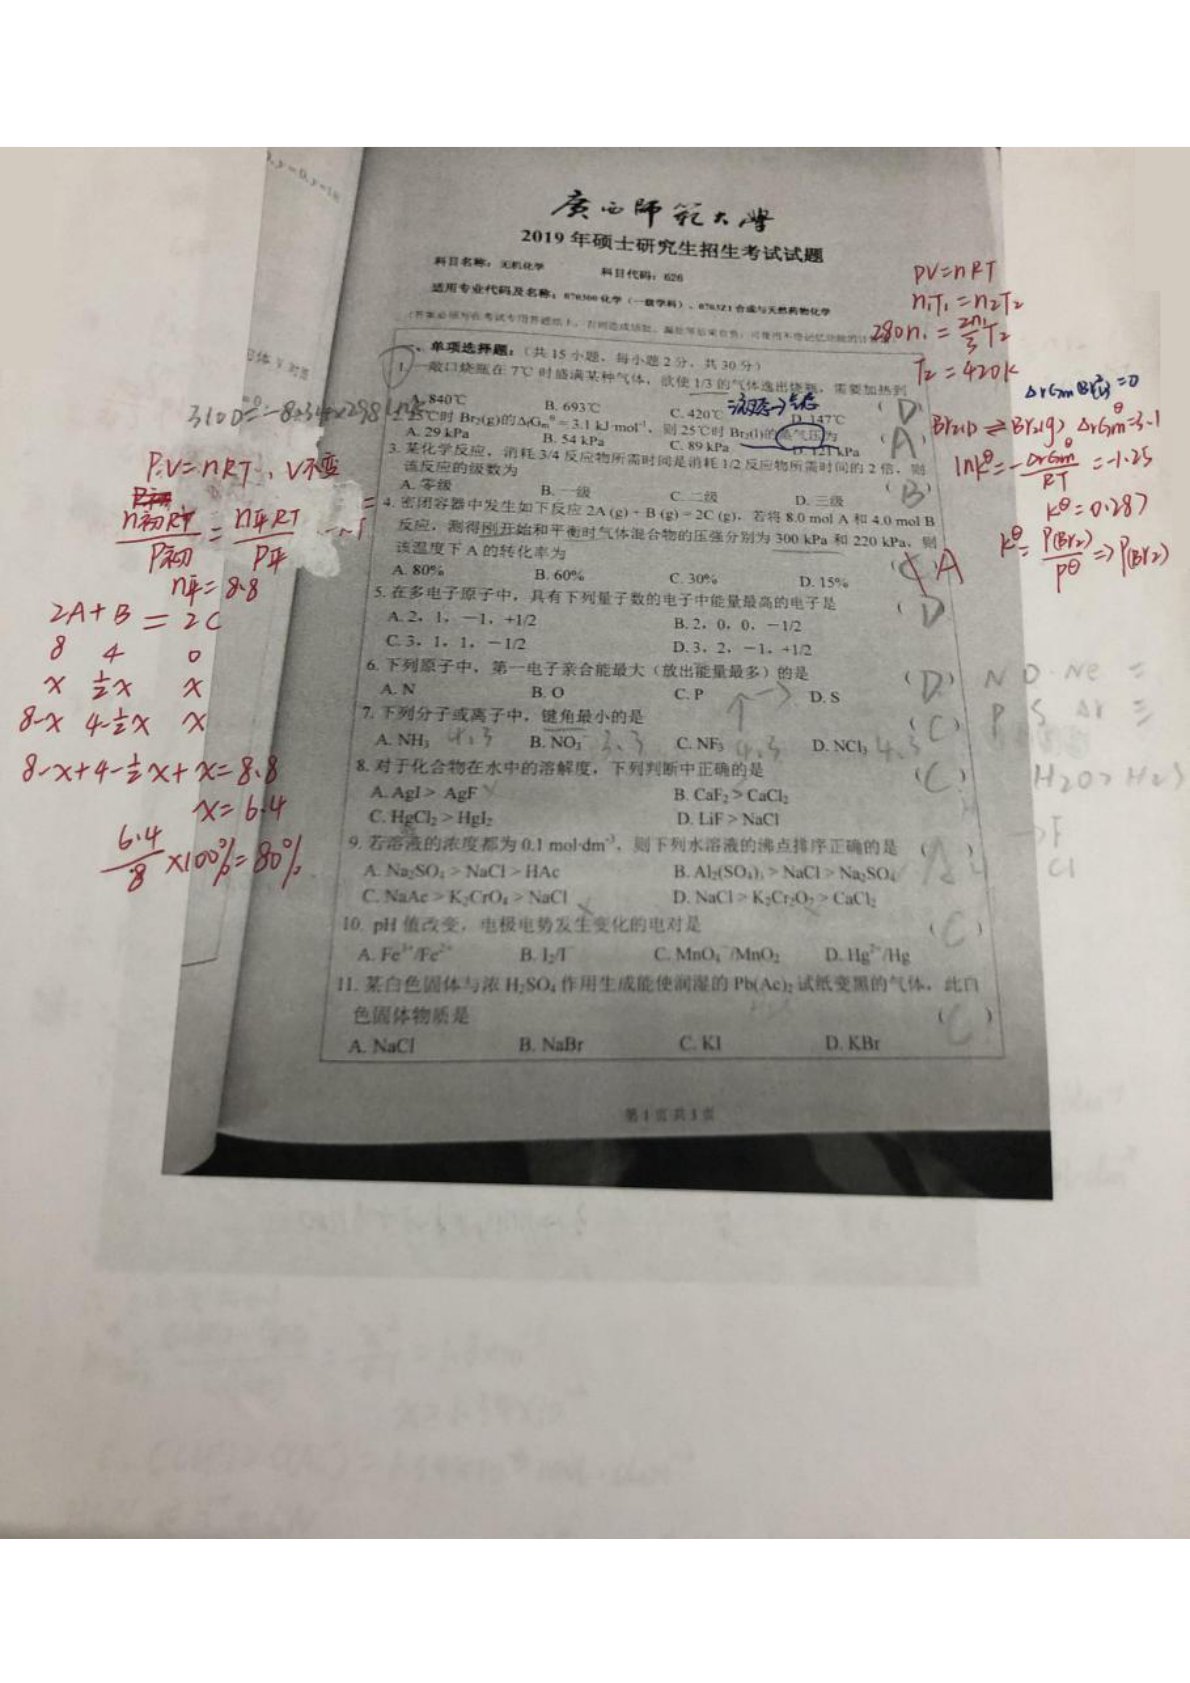 廣西師範大學
2019 年硕士研究生招生考试试题
科目名称：无机化学 科目代码：626
适用专业代码及名称：070300 化学（一级学科）、0703Z1 合成与天然药物化学
一、单项选择题：（共 15 小题，每小题 2 分，共 30 分）
1. 一敞口烧瓶在 7℃ 时盛满某种气体，欲使 1/3 的气体逸出烧瓶，需要加热到
A. 840℃ B. 693℃ C. 420℃ D. 147℃ (D)
2. 25℃时 Br₂(g)的ΔfGmᶿ = 3.1 kJ·mol⁻¹，则 25℃时 Br₂(l)的蒸气压为
A. 29 kPa B. 54 kPa C. 89 kPa D. 121 kPa (A)
3. 某化学反应，消耗 3/4 反应物所需时间是消耗 1/2 反应物所需时间的 2 倍，则
该反应的级数为 (B)
A. 零级 B. 一级 C. 二级 D. 三级
4. 密闭容器中发生如下反应 2A (g) + B (g) = 2C (g)，若将 8.0 mol A 和 4.0 mol B
反应，测得刚开始和平衡时气体混合物的压强分别为 300 kPa 和 220 kPa，则
该温度下 A 的转化率为 A
A. 80% B. 60% C. 30% D. 15%
5. 在多电子原子中，具有下列量子数的电子中能量最高的电子是 (D)
A. 2，1，－1，+1/2 B. 2，0，0，－1/2
C. 3，1，1，－1/2 D. 3，2，－1，+1/2
6. 下列原子中，第一电子亲合能最大（放出能量最多）的是 (D)
A. N B. O C. P D. S
7. 下列分子或离子中，键角最小的是 (C)
A. NH₃ 4.3 B. NO₃⁻ 3.3 C. NF₃ 4.3 D. NCl₃ 4.3
8. 对于化合物在水中的溶解度，下列判断中正确的是 (C)
A. AgI > AgF B. CaF₂ > CaCl₂
C. HgCl₂ > HgI₂ D. LiF > NaCl
9. 若溶液的浓度都为 0.1 mol·dm⁻³，则下列水溶液的沸点排序正确的是 ( )
A. Na₂SO₄ > NaCl > HAc B. Al₂(SO₄)₃ > NaCl > Na₂SO₄
C. NaAc > K₂CrO₄ > NaCl D. NaCl > K₂Cr₂O₇ > CaCl₂
10. pH 值改变，电极电势发生变化的电对是 (C)
A. Fe³⁺/Fe²⁺ B. I₂/I⁻ C. MnO₄⁻/MnO₂ D. Hg²⁺/Hg
11. 某白色固体与浓 H₂SO₄ 作用生成能使润湿的 Pb(Ac)₂ 试纸变黑的气体，此白
色固体物质是 (C)
A. NaCl B. NaBr C. KI D. KBr
第 1 页 共 3 页
PV=nRT
n₁T₁=n₂T₂
280n₁=2n₁/3 T₂
T₂=420K
液态→气态
Br₂(l) ⇌ Br₂(g) ΔrGmᶿ=3.1
lnKᶿ=-ΔrGmᶿ/RT =-1.25
Kᶿ=0.287
Kᶿ=P(Br₂)/Pᶿ => P(Br₂)
P.V=nRT，V不变
n初RT/P初 = n平RT/P平
n平=8.8
2A+B=2C
8 4 0
x ½x x
8-x 4-½x x
8-x+4-½x+x=8.8
x=6.4
6.4/8 ×100%=80%